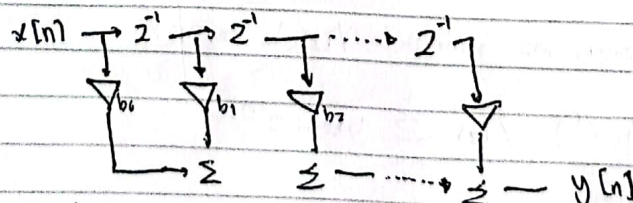 x[n] → z⁻¹ → z⁻¹ ⋯→ z⁻¹
b₀ b₁ b₂
Σ Σ ⋯→ Σ y[n]